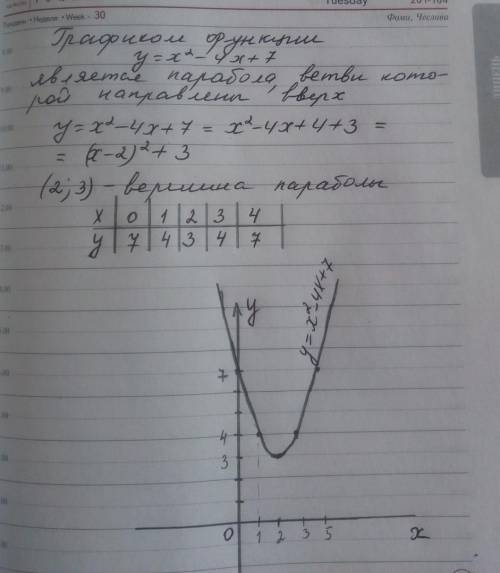 Tuesday
Неделя • Week - 30
Фомы, Чеслава
Графиком функции
y = x² - 4x + 7
является парабола, ветви кото-
рой направлены вверх
y = x² - 4x + 7 = x² - 4x + 4 + 3 =
= (x - 2)² + 3
(2; 3) - вершина параболы
x | 0 | 1 | 2 | 3 | 4
y | 7 | 4 | 3 | 4 | 7
y
y = x² - 4x + 7
7
4
3
0 1 2 3 5 x